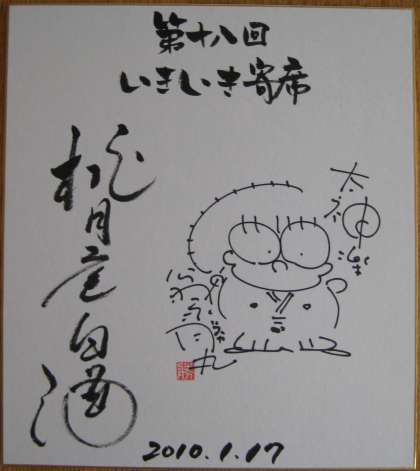 第十八回
いきいき寄席
桃月庵白酒
太神楽
2010.1.17